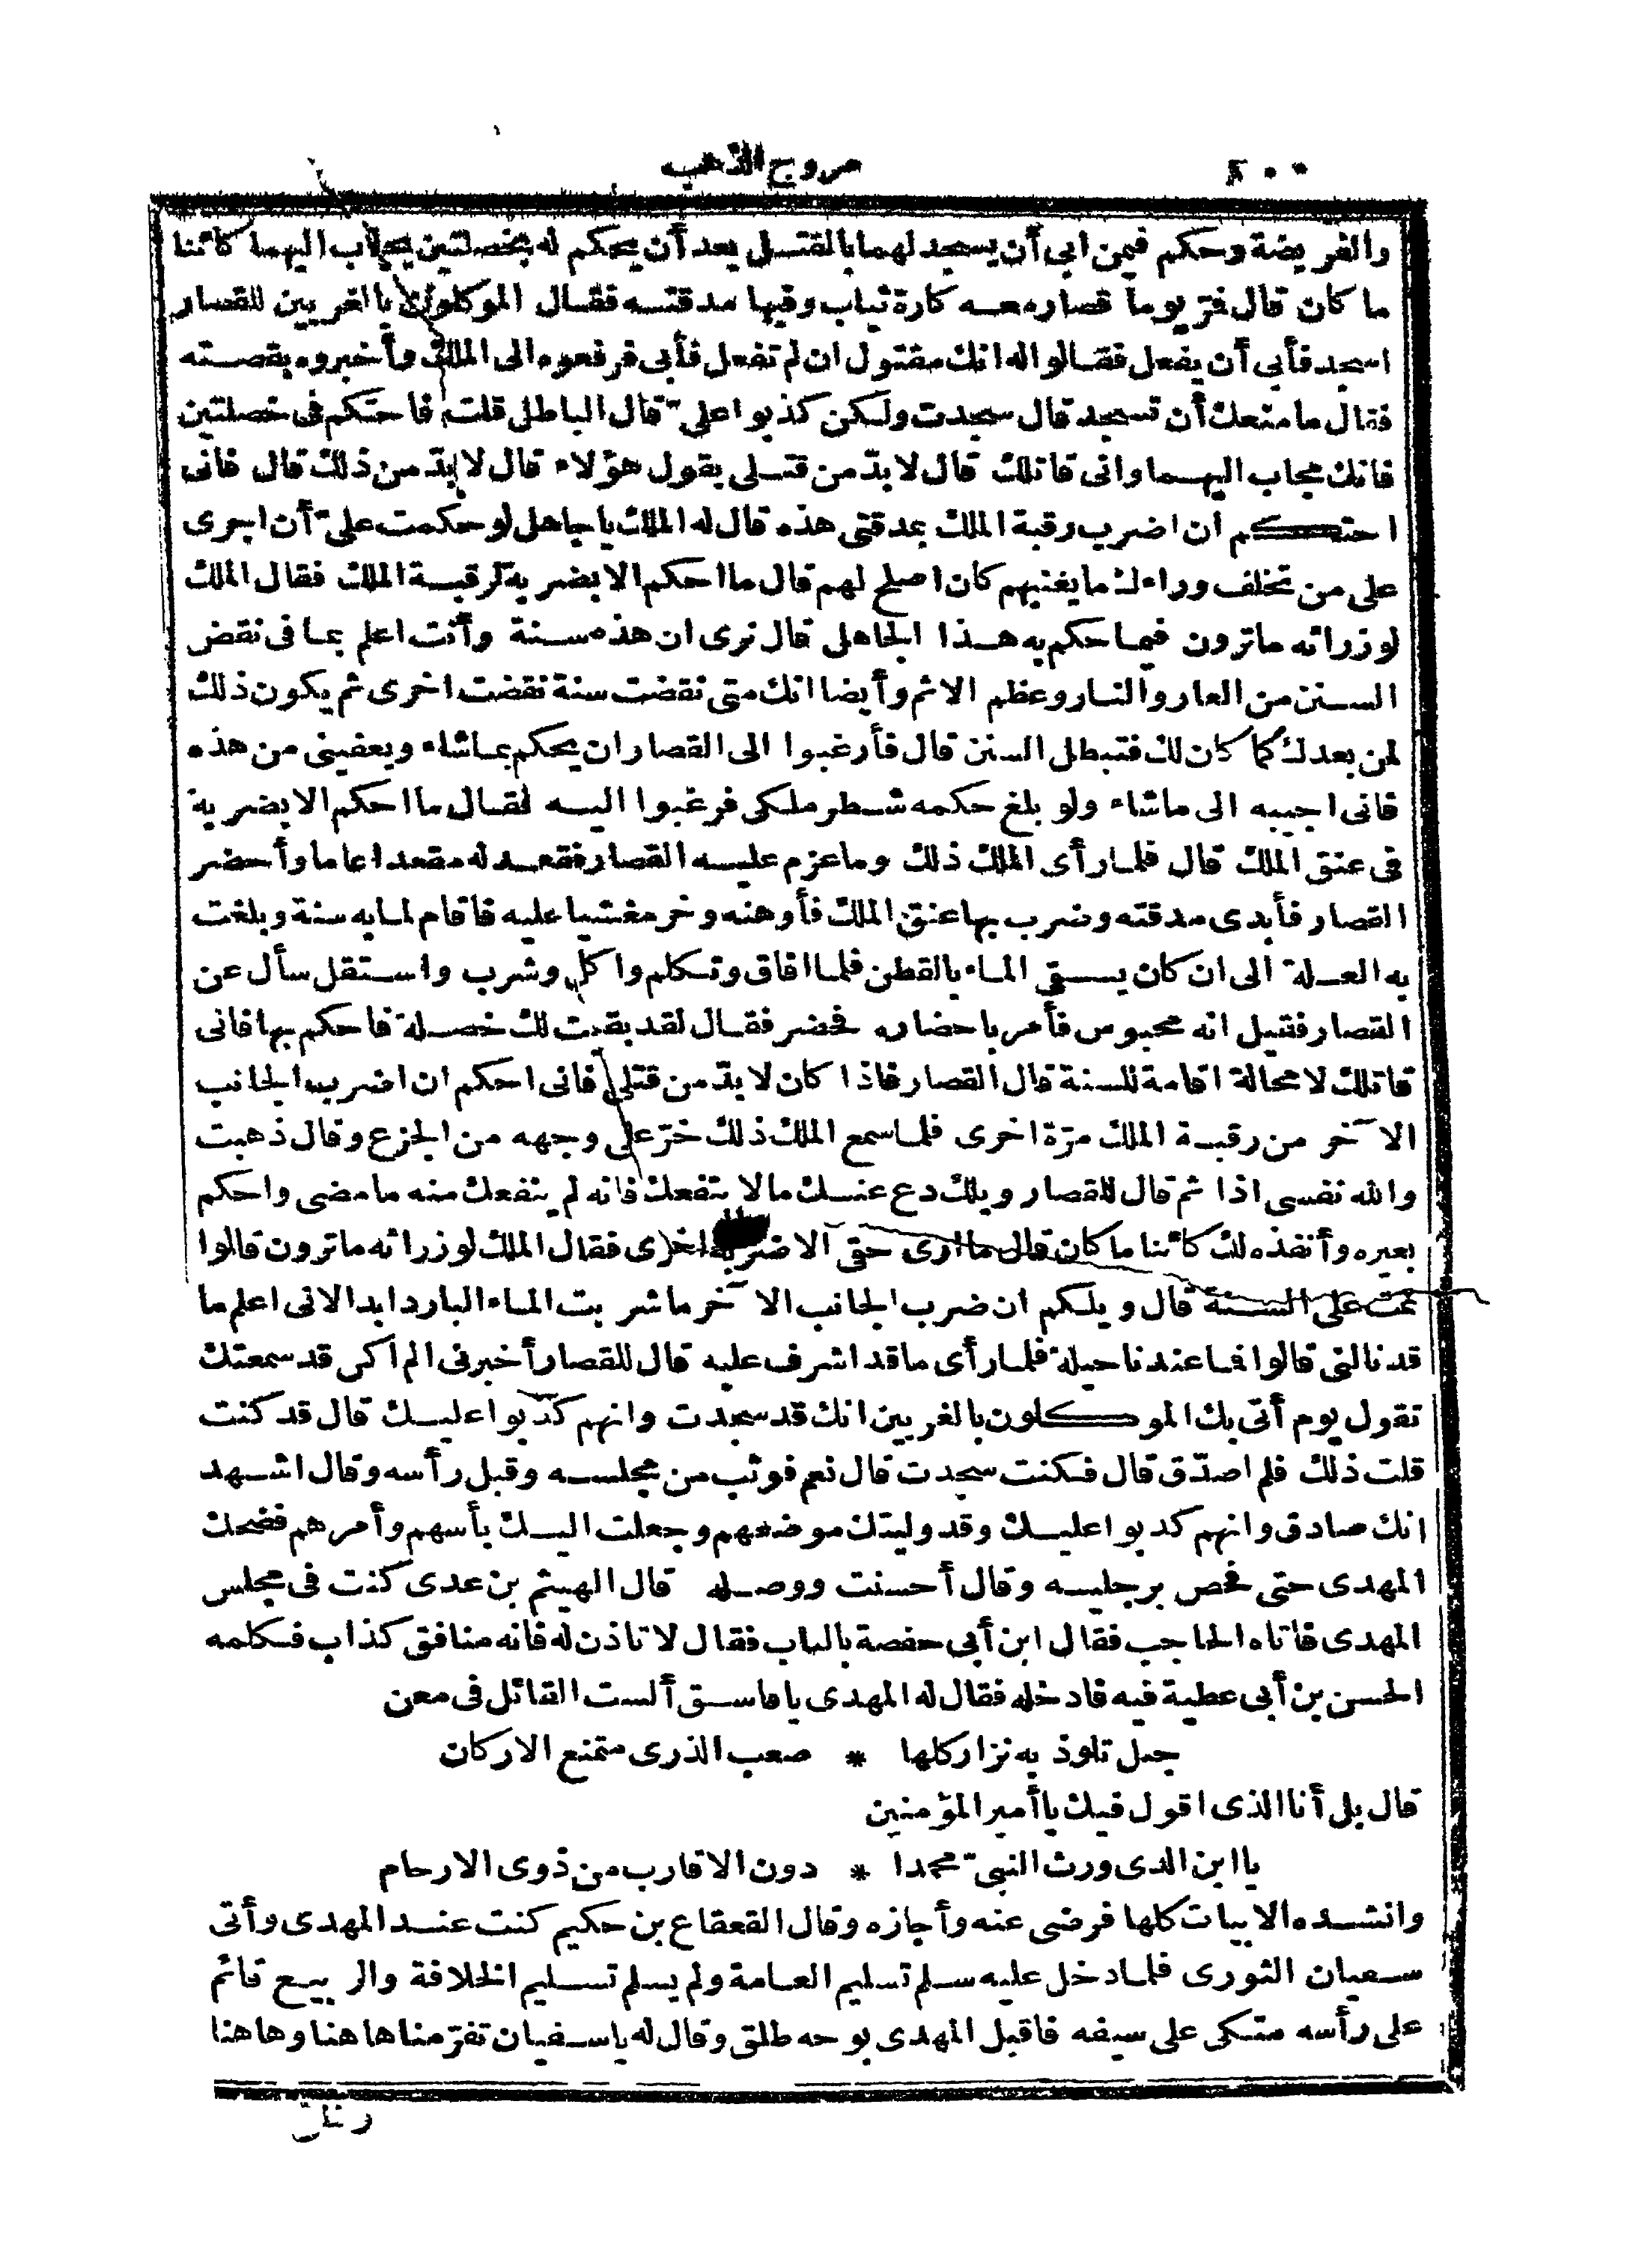 ٤٠٠ مروج الذهب
والفريضة وحكم فيمن ابى أن يسجد لهما بالقتل بعد أن يحكم له بخصلتين يجاب اليهما كائنا
ما كان قال فمرّ يوما قصار معه كارة ثياب وفيها مدقته فقال الموكلون بالغريين للقصار
اسجد فأبى أن يفعل فقالوا له انك مقتول ان لم تفعل فأبى فرفعوه الى الملك وأخبروه بقصته
فقال ما منعك أن تسجد قال سجدت ولكن كذبوا علىّ قال الباطل قلت فاحتكم فى خصلتين
فانك مجاب اليهما وانى قاتلك قال لا بدّ من قتلى بقول هؤلاء قال لا بدّ من ذلك قال فانى
احتكم ان اضرب رقبة الملك بمدقتى هذه قال له الملك يا جاهل لو حكمت علىّ أن اجرى
على من تخلف وراءك ما يغنيهم كان اصلح لهم قال ما احكم الا بضربة لرقبة الملك فقال الملك
لوزرائه ما ترون فيما حكم به هذا الجاهل قال نرى ان هذه سنة وأنت اعلم بما فى نقض
السنن من العار والنار وعظم الاثم وأيضا انك متى نقضت سنة نقضت اخرى ثم يكون ذلك
لمن بعدك كما كان لك فتبطل السنن قال فأرغبوا الى القصار ان يحكم بما شاء ويعفينى من هذه
فانى اجيبه الى ما شاء ولو بلغ حكمه شطر ملكى فرغبوا اليه فقال ما احكم الا بضربة
فى عنق الملك قال فلما رأى الملك ذلك وما عزم عليه القصار فقعد له مقعدا عاما وأحضر
القصار فأبدى مدقته وضرب بها عنق الملك فأوهنه وخر مغشيا عليه فاقام لما به سنة وبلغت
به العلة الى ان كان يسقى الماء بالقطن فلما افاق وتكلم واكل وشرب واستقل سأل عن
القصار فقيل انه محبوس فأمر باحضاره فحضر فقال لقد بقيت لك خصلة فاحكم بها فانى
قاتلك لا محالة اقامة للسنة قال القصار فاذا كان لا بدّ من قتلى فانى احكم ان اضرب الجانب
الآخر من رقبة الملك مرّة اخرى فلما سمع الملك ذلك خرّ على وجهه من الجزع وقال ذهبت
والله نفسى اذا ثم قال للقصار ويلك دع عنك ما لا ينفعك فانه لم ينفعك منه ما مضى واحكم
بغيره وأنفذه لك كائنا ما كان قال ما ارى حقى الا ضربة اخرى فقال الملك لوزرائه ما ترون قالوا
تمت على السنة قال ويلكم ان ضرب الجانب الآخر ما شربت الماء البارد ابدا لانى اعلم ما
قد نالنى قالوا فما عندنا حيلة فلما رأى ما قد اشرف عليه قال للقصار أخبرنى الم اكن قد سمعتك
تقول يوم أتى بك الموكلون بالغريين انك قد سجدت وانهم كذبوا عليك قال قد كنت
قلت ذلك فلم اصدّق قال فكنت سجدت قال نعم فوثب من مجلسه وقبل رأسه وقال اشهد
انك صادق وانهم كذبوا عليك وقد وليتك موضعهم وجعلت اليك بأسهم وأمرهم فضحك
المهدى حتى فحص برجليه وقال أحسنت ووصله قال الهيثم بن عدى كنت فى مجلس
المهدى فاتاه الحاجب فقال ابن أبى حفصة بالباب فقال لا تاذن له فانه منافق كذاب فكلمه
الحسن بن أبى عطية فيه فادخله فقال له المهدى يا فاسق ألست القائل فى معن
جبل تلوذ به نزار كلها * صعب الذرى متمنع الاركان
قال بل أنا الذى اقول فيك يا أمير المؤمنين
يا ابن الذى ورث النبىّ محمدا * دون الاقارب من ذوى الارحام
وانشده الابيات كلها فرضى عنه وأجازه وقال القعقاع بن حكيم كنت عند المهدى وأتى
سفيان الثورى فلما دخل عليه سلم تسليم العامة ولم يسلم تسليم الخلافة والربيع قائم
على رأسه متكى على سيفه فاقبل المهدى بوجه طلق وقال له يا سفيان تفرّ منا هاهنا وهاهنا